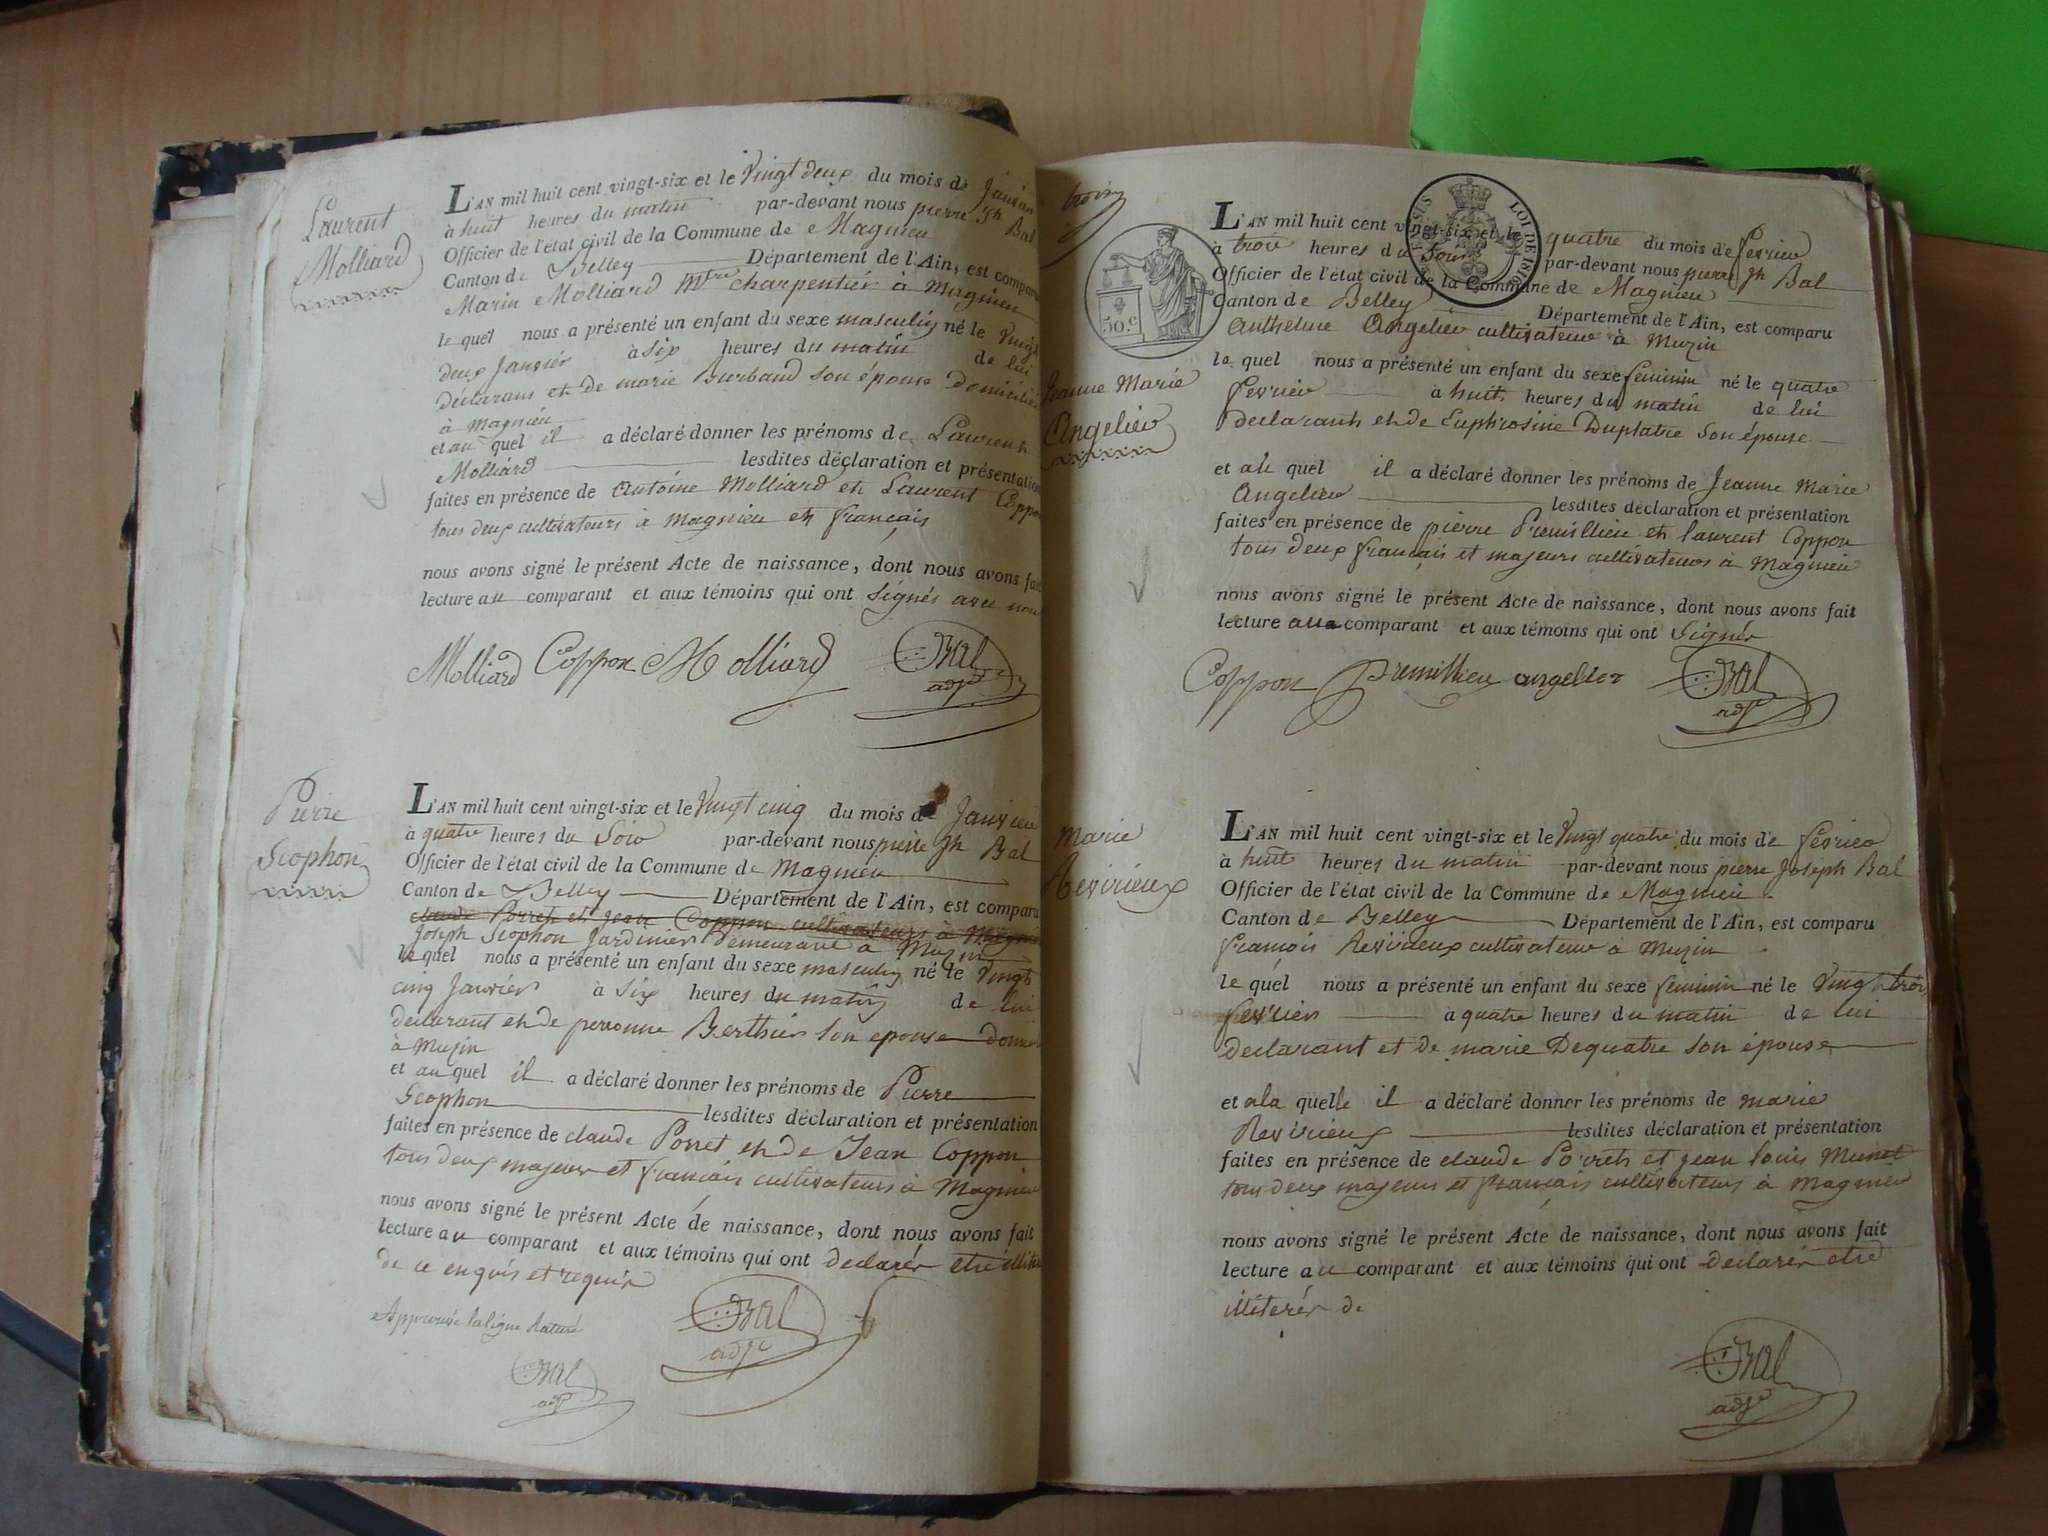 Laurent
Molliard
L'AN mil huit cent vingt-six et le Vingt deux du mois de Janvier
à huit heures du matin par-devant nous pierre jh Bal
Officier de l'état civil de la Commune de Magnieu
Canton de Belley Département de l'Ain, est comparu
Marin Molliard Mtre charpentier à Magnieu
le quel nous a présenté un enfant du sexe masculin né le Vingt
deux Janvier à six heures du matin de lui
déclarant et de marie Burband son épouse Domicilié
à magnieu
et au quel il a déclaré donner les prénoms de Laurent
Molliard lesdites déclaration et présentation
faites en présence de Antoine Molliard et Laurent Coppon
tous deux cultivateurs à magnieu et français
nous avons signé le présent Acte de naissance, dont nous avons fait
lecture au comparant et aux témoins qui ont Signés avec nous
Molliard Coppon Molliard Bal
adjt
Pierre
Scophon
L'AN mil huit cent vingt-six et le Vingt cinq du mois de Janvier
à quatre heures du Soir par-devant nous pierre jh Bal
Officier de l'état civil de la Commune de Magnieu
Canton de Belley Département de l'Ain, est comparu
claude Porret et jean Coppon cultivateurs à Magnieu
Joseph Scophon Jardinier Demeurant à Muzin
le quel nous a présenté un enfant du sexe masculin né le Vingt
cinq Janvier à six heures du matin de lui
declarant et de peronne Berthier son epouse
à Muzin
et au quel il a déclaré donner les prénoms de Pierre
Scophon lesdites déclaration et présentation
faites en présence de claude Porret et de Jean Coppon
tous deux majeurs et français cultivateurs à Magnieu
nous avons signé le présent Acte de naissance, dont nous avons fait
lecture au comparant et aux témoins qui ont declarés etre
de ce enquis et requis
Approuvé la ligne raturé
Bal
adjt
Bal
adjt
trois
50.C
LOI DE 1816
Jeanne Marie
Angelier
L'AN mil huit cent vingt-six et le quatre du mois de fevrier
à trois heures du Soir par-devant nous pierre jh Bal
Officier de l'état civil de la Commune de Magnieu
Canton de Belley Département de l'Ain, est comparu
Anthelme Angelier cultivateur à Muzin
le quel nous a présenté un enfant du sexe feminin né le quatre
fevrier à huit heures du matin de lui
declarant et de Euphrosine Duplatre son épouse
et au quel il a déclaré donner les prénoms de Jeanne Marie
Angelier lesdites déclaration et présentation
faites en présence de pierre Premillieu et laurent Coppon
tous deux français et majeurs cultivateurs à Magnieu
nous avons signé le présent Acte de naissance, dont nous avons fait
lecture au comparant et aux témoins qui ont Signés
Coppon Premillieu angelier Bal
adjt
Marie
Revirieux
L'AN mil huit cent vingt-six et le Vingt quatre du mois de fevrier
à huit heures du matin par-devant nous pierre Joseph Bal
Officier de l'état civil de la Commune de Magnieu
Canton de Belley Département de l'Ain, est comparu
françois Revirieux cultivateur à Muzin
le quel nous a présenté un enfant du sexe feminin né le Vingt trois
fevrier à quatre heures du matin de lui
declarant et de marie Dequatre son épouse
et ala quelle il a déclaré donner les prénoms de marie
Revirieux lesdites déclaration et présentation
faites en présence de claude Porret et jean louis Munet
tous deux majeurs et français cultivateurs à Magnieu
nous avons signé le présent Acte de naissance, dont nous avons fait
lecture au comparant et aux témoins qui ont declarés etre
illiterés de
Bal
adjt